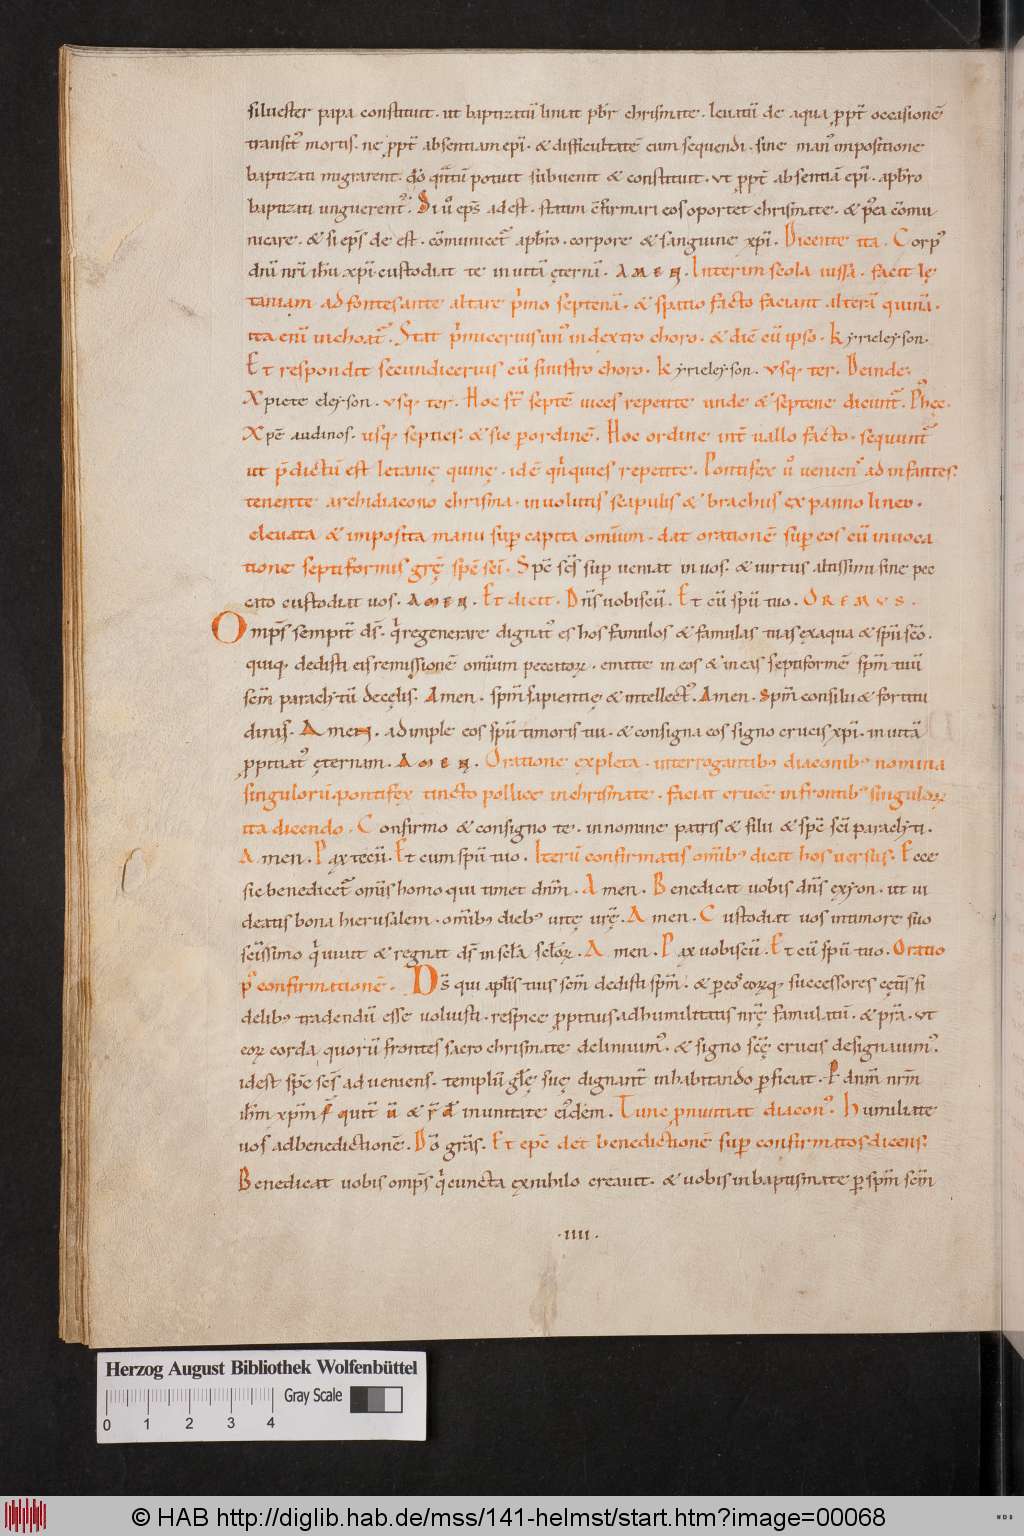 siluester papa constituit· ut baptizatū liniat pbr̄ chrismate· leuatū de aqua ꝓpt̄ occasionē
transit᷒ mortis· ne ꝓpt̄ absentiam epi· & difficultatē cum sequendi· sine man᷒ impositione
baptizati migrarent· potuit subuenit & constituit· ut ꝓpt̄ absentiā epi· apbr̄o
baptizati unguerent᷒· Si u̅ ep̄s adest· statim cf̄irmari eos oportet chrismate· & p᷒ea cōmu
nicare· & si ep̄s de est· cōmunicet᷒ apbr̄o· corpore & sanguine xp̄i· Dicente ita· Corp᷒
dnī nr̄i ihū xp̄i custodiat te in uitā ęternā· AMEN· Interim scola iussa· facit lę
taniam ad fontes ante altare p̄mo septenā· & spatio facto faciant alterā quinā·
ita enī inchoat᷒· Stat p̄micerius un᷒ in dextro choro· & dic̄ cū ipso· Kyrieleyson·
Et respondit secundicerius cū sinistro choro· Kyrieleyson· usq· ter· Deinde·
Xpicte eleyson· usq· ter· Hoc st̄ septē uices repetite unde & septene dicunt᷒·
Xpē audinos· usq· septies· & sic ꝑordinē· Hoc ordine int̄ uallo facto· sequunt᷒
ut p̄dictū est letanię quinę· idē qn̄quies repetite· Pontifex u̅ ueniens ad infantes·
tenente archidiacono chrisma· inuolutis scapulis & brachiis ex panno lineo·
eleuata & imposita manu suꝑ capita omīum· dat orationē suꝑ eos cū inuoca
tione septiformis grę̄ spc̄ sci· Spc̄ sc̄s suꝑ ueniat in uos· & uirtus altissimi sine pec
cato custodiat uos· AMEN· Et dicit· Dn̄s uobiscū· Et cū spū tuo· OREMUS·
Omp̄s sempit̄ ds̄· q̄ regenerare dignat᷒ es hos famulos & famulas tuas exaqua & spū scō·
quiq· dedisti eis remissionē omīum peccatoꝝ· emitte in eos & in eas septiformē spm̄ tuū
scm̄ paraclytū decęlis· Amen· spm̄ sapientię & intellect᷒· Amen· Spm̄ consilii & fortitu
dinis· Amen· adimple eos spū timoris tui· & consigna eos signo crucis xp̄i· in uitā
ꝓpitiat᷒ ęternam· AMEN· Oratione expleta· interrogantib᷒ diaconib᷒ nomina
singulorū· pontifex tincto pollice in chrismate· faciat crucē in frontib᷒ singuloꝝ
ita dicendo· Confirmo & consigno te· in nomine patris & filii & spc̄ sc̄i paraclyti·
Amen· Pax tecū· Et cum spū tuo· Iterū confirmatis omīb᷒ dicat hos uersus· Ecce
sic benedicet᷒ omīs homo qui timet dnm̄· Amen· Benedicat uobis dn̄s exyon· ut ui
deatis bona hierusalem· omīb᷒ dieb᷒ uitę urę̄· Amen· Custodiat uos in timore suo
sc̄issimo q̄ uiuit & regnat ds̄ in scl̄a scl̄oꝝ· Amen· Pax uobiscū· Et cū spū tuo· Oratio
p᷒ confirmationē· Ds̄ qui apl̄is tuis scm̄ dedisti spm̄· & ꝑ eos eoꝝq· successores cęt̄is fi
delib᷒ tradendū esse uoluisti· respice ꝓpitius adhumilitatis nrę̄ famulatū· & pr̄a· ut
eoꝝ corda quorū frontes sacro chrismate deliniuim᷒· & signo scę̄ crucis designauim᷒·
idest spc̄ sc̄s adueniens· templū glę̄ suę dignant̄ inhabitando ꝑficiat· P dnm̄ nrm̄
ihm̄ xpm̄ in unitate eī̄dem· Tunc ꝓnuntiat diacon᷒· Humiliate
uos adbenedictionē· Dō grās· Et epc̄ det benedictionē suꝑ confirmatos dicens·
Benedicat uobis omp̄s q̄ cuncta exnihilo creauit· & uobis in baptismate ꝑ spm̄ scm̄
·IIII·
Herzog August Bibliothek Wolfenbüttel
Gray Scale
0 1 2 3 4
© HAB http://diglib.hab.de/mss/141-helmst/start.htm?image=00068